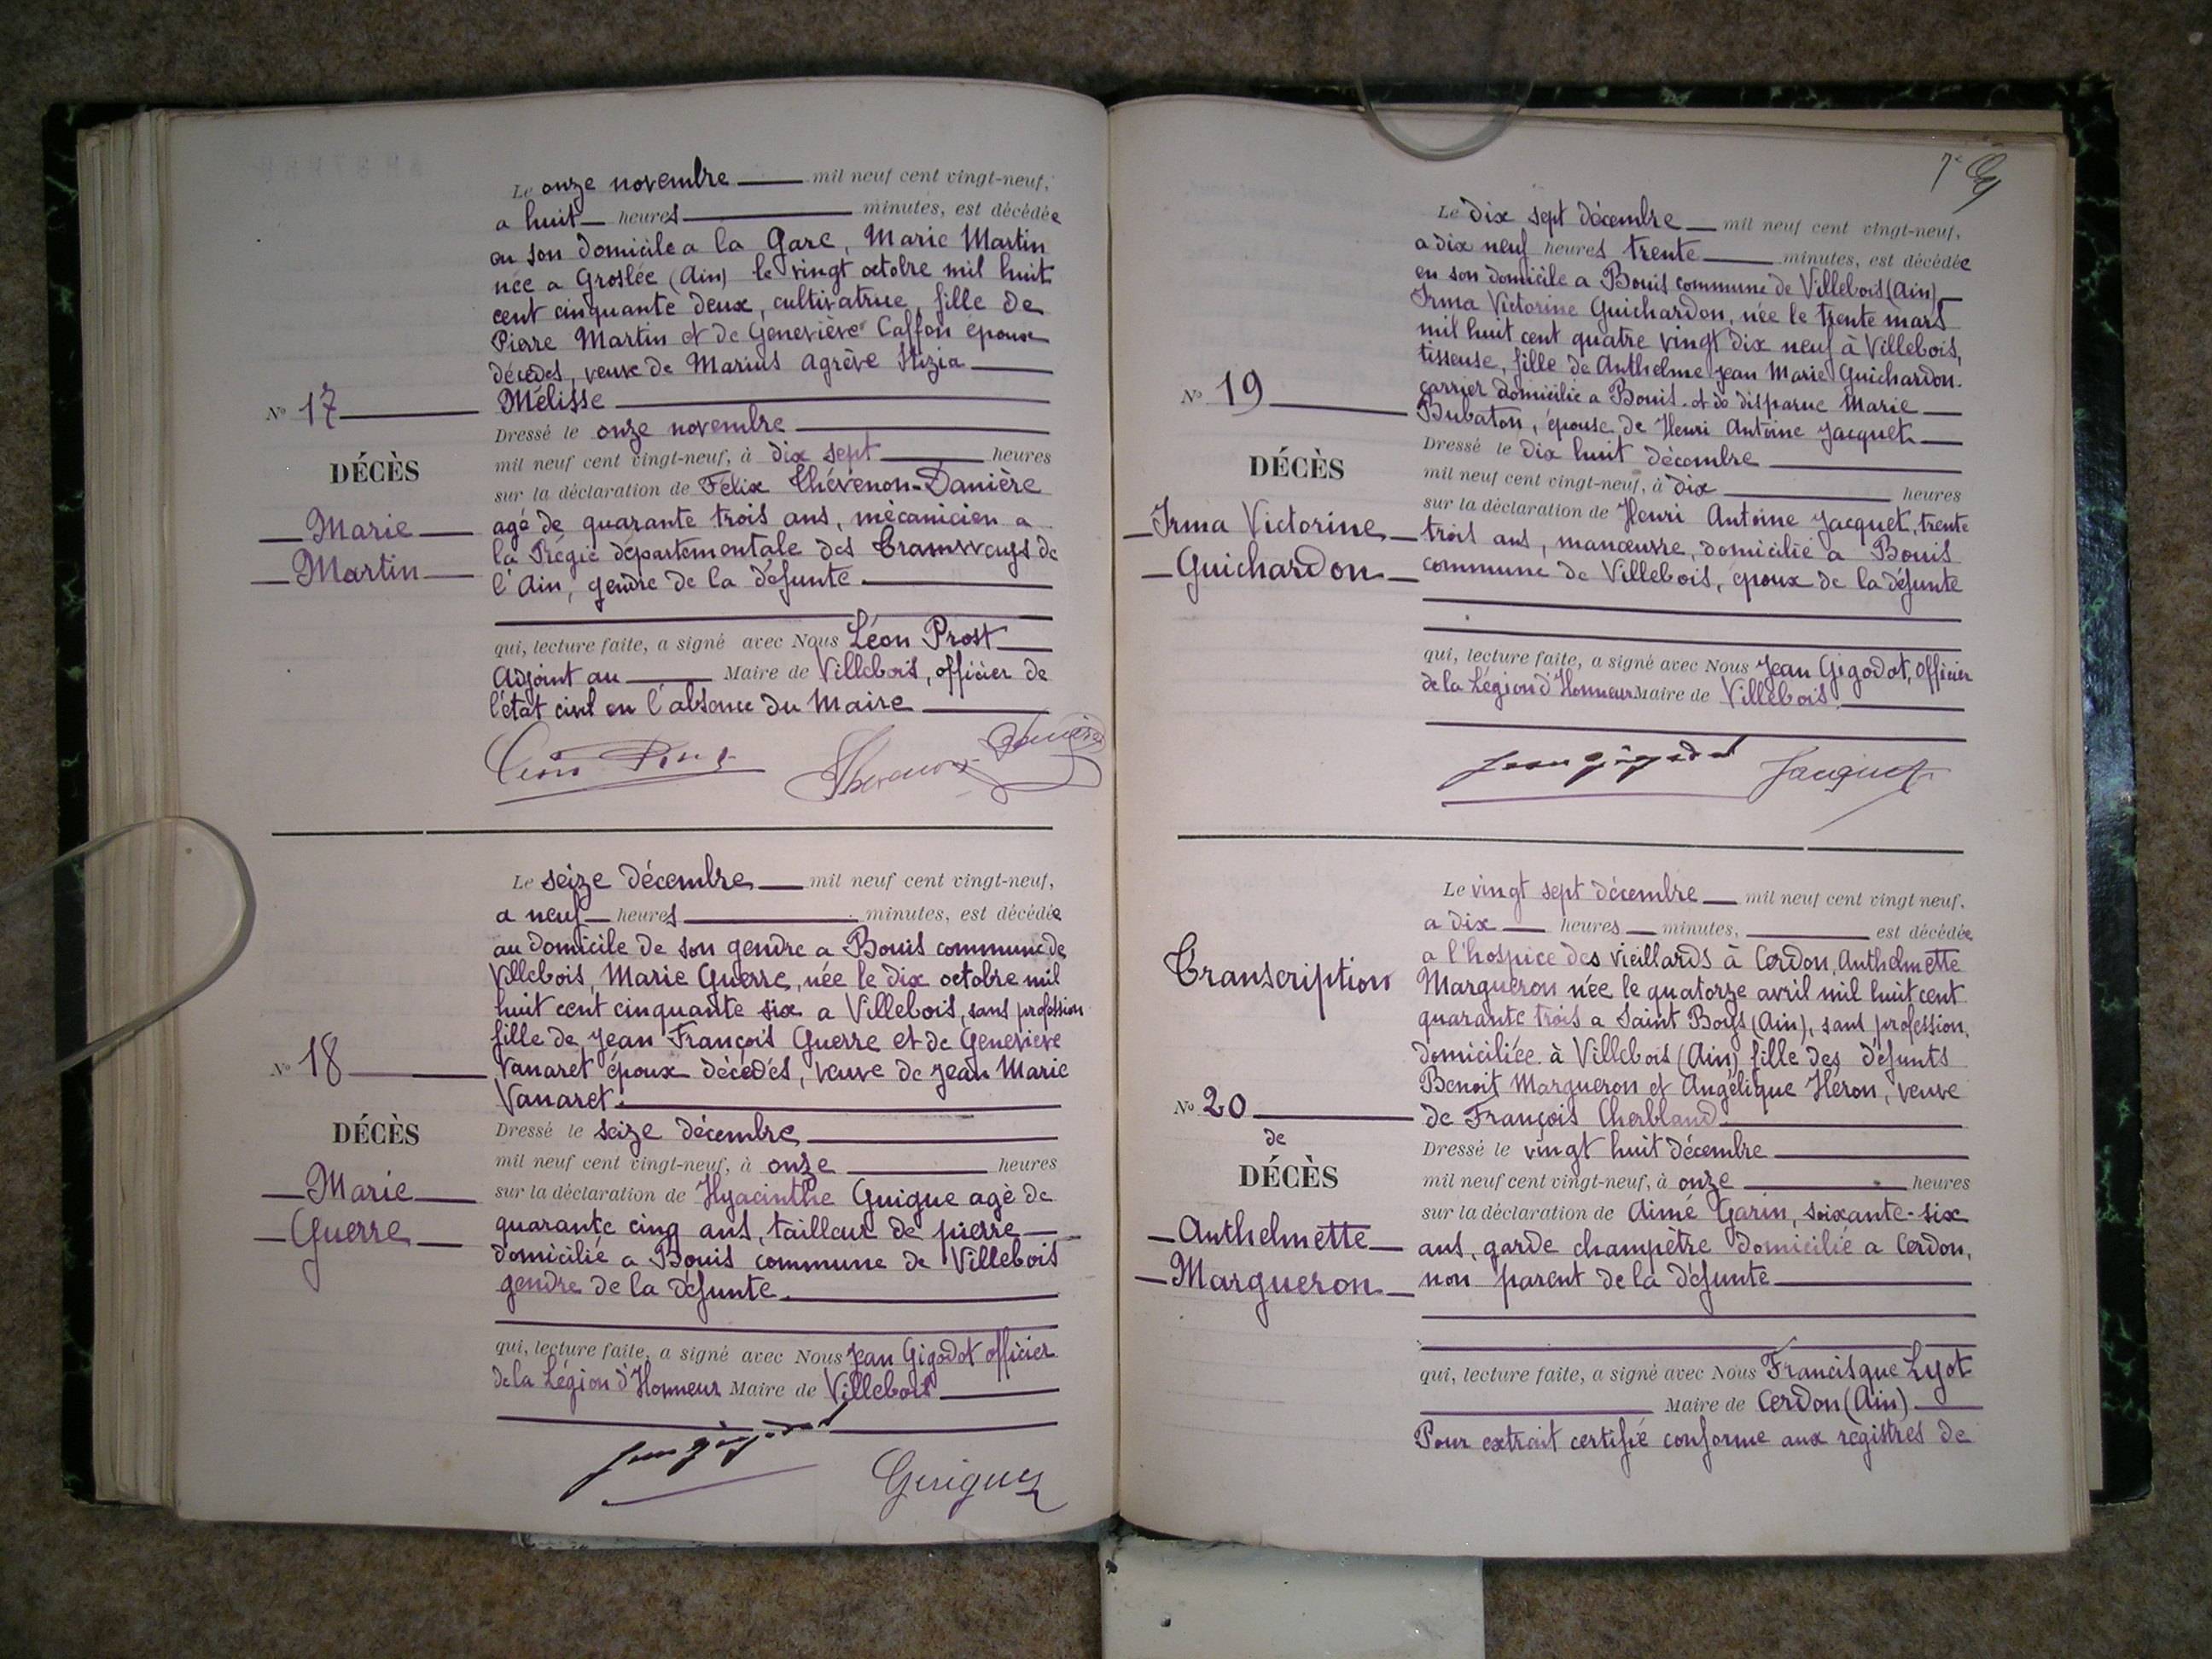 Le onze novembre mil neuf cent vingt-neuf,
a huit heures minutes, est décédée
en son domicile a la Gare, Marie Martin
née a Groslée (Ain) le vingt octobre mil huit
cent cinquante deux, cultivatrice, fille de
Pierre Martin et de Geneviève Caffon époux
décédés, veuve de Marius Agrève
Mélisse
No 17
Dressé le onze novembre
mil neuf cent vingt-neuf, à dix sept heures
DÉCÈS
sur la déclaration de Félix Thévenon-Danière
Marie
agé de quarante trois ans, mécanicien a
Martin
la Régie départementale des Tramways de
l'Ain, gendre de la défunte
qui, lecture faite, a signé avec Nous Léon Prost
Adjoint au Maire de Villebois, officier de
l'état civil en l'absence du Maire
Léon Prost Thévenon-Danière
Le seize décembre mil neuf cent vingt-neuf,
a neuf heures minutes, est décédée
au domicile de son gendre a Bouis commune de
Villebois, Marie Guerre, née le dix octobre mil
huit cent cinquante six a Villebois, sans profession
fille de Jean François Guerre et de Genevieve
Vanaret époux décédés, veuve de Jean Marie
Vanaret.
No 18
Dressé le seize décembre
DÉCÈS
mil neuf cent vingt-neuf, à onze heures
Marie
sur la déclaration de Hyacinthe Guigue agé de
Guerre
quarante cinq ans, tailleur de pierre
domicilié a Bouis commune de Villebois
gendre de la défunte.
qui, lecture faite, a signé avec Nous Jean Gigodot officier
de la Légion d'Honneur Maire de Villebois
Jean Gigodot Guigue
7e
Le dix sept décembre mil neuf cent vingt-neuf,
a dix neuf heures trente minutes, est décédée
en son domicile a Bouis commune de Villebois (Ain)
Irma Victorine Guichardon, née le trente mars
mil huit cent quatre vingt dix neuf à Villebois,
tisseuse, fille de Anthelme Jean Marie Guichardon.
carrier domicilié a Bouis et de disparue Marie
Bubaton, épouse de Henri Antoine Jacquet.
No 19
Dressé le dix huit décembre
DÉCÈS
mil neuf cent vingt-neuf, à dix heures
Irma Victorine
sur la déclaration de Henri Antoine Jacquet, trente
Guichardon
trois ans, manœuvre, domicilié a Bouis
commune de Villebois, époux de la défunte
qui, lecture faite, a signé avec Nous Jean Gigodot, Officier
de la Légion d'Honneur Maire de Villebois.
Jean Gigodot Jacquet
Le vingt sept décembre mil neuf cent vingt neuf,
a dix heures minutes, est décédée
a l'hospice des vieillards à Cerdon, Anthelmette
Transcription
Margueron née le quatorze avril mil huit cent
quarante trois a Saint Boys (Ain), sans profession,
domiciliée à Villebois (Ain) fille des défunts
Benoit Margueron et Angélique Héron, veuve
de François Cherbland
No 20
de
DÉCÈS
Dressé le vingt huit décembre
mil neuf cent vingt-neuf, à onze heures
sur la déclaration de Aimé Garin, soixante-six
Anthelmette
ans, garde champêtre domicilié a Cerdon,
Margueron
non parent de la défunte
qui, lecture faite, a signé avec Nous Francisque Lyot
Maire de Cerdon (Ain)
Pour extrait certifié conforme aux registres de